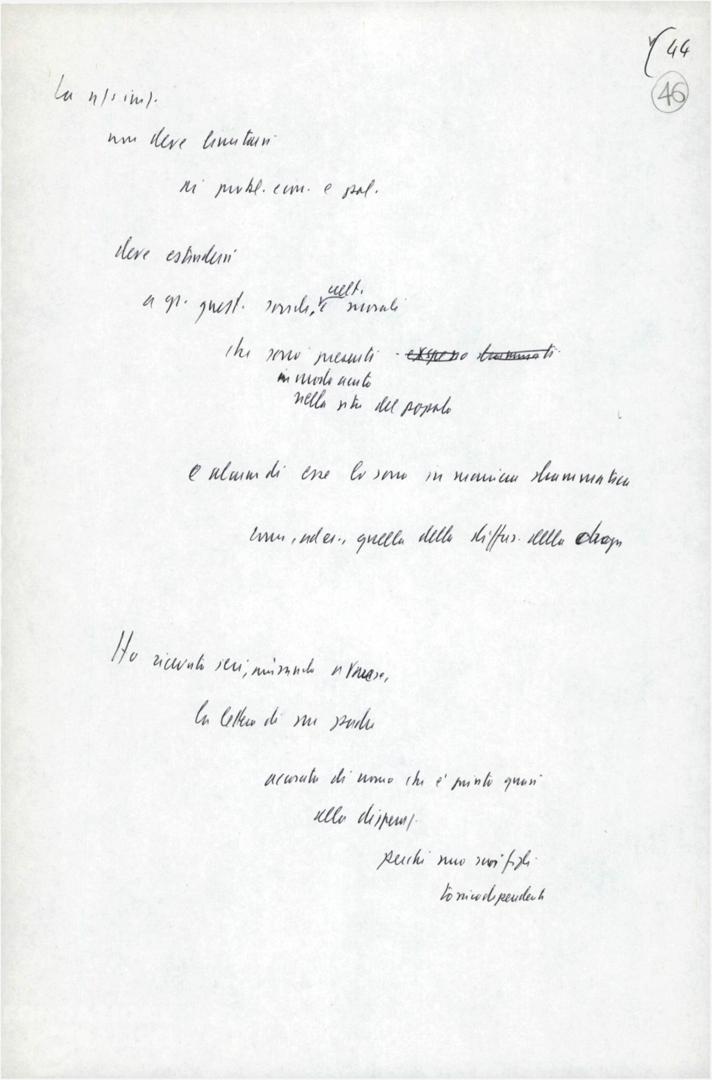 44
46
La
non deve limitarsi
ai probl. econ. e pol.
deve estendersi
cult.
a gr. quest. sociali, e morali
che sono presenti
in modo acuto
nella vita del popolo
e alcune di esse lo sono in maniera drammatica
come, ad es., quella della diffus. della droga
Ho ricevuto ieri, arrivando a Varese,
la lettera di un padre
accorata di uomo che è giunto quasi
alla disperaz.
perché suoi figli
tossicodipendenti